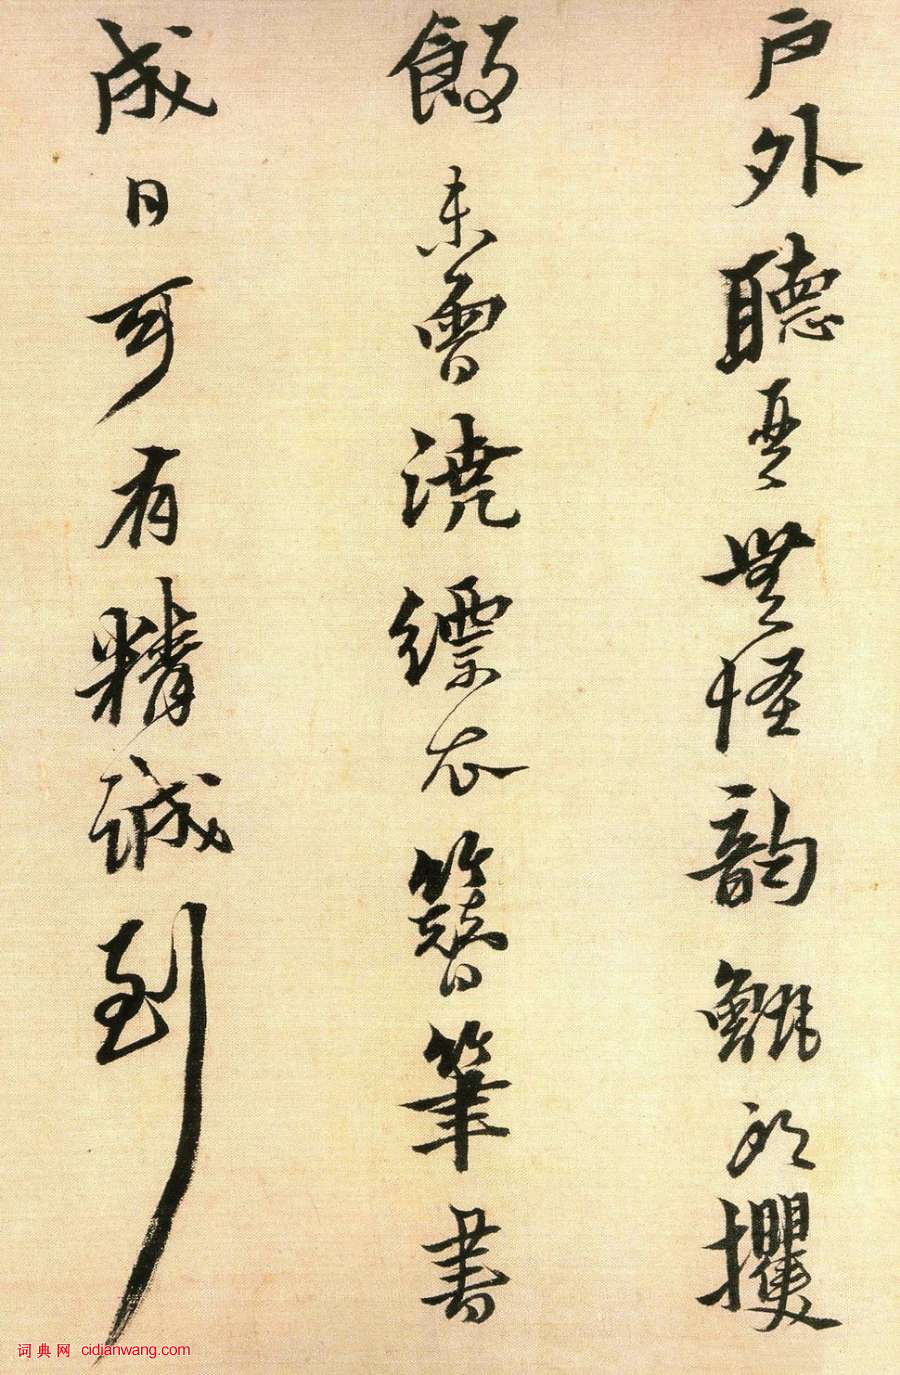 户外聽無怪韻攫
未曾澆縹衣簪筆書
成日可有精誠到
词典网 cidianwang.com